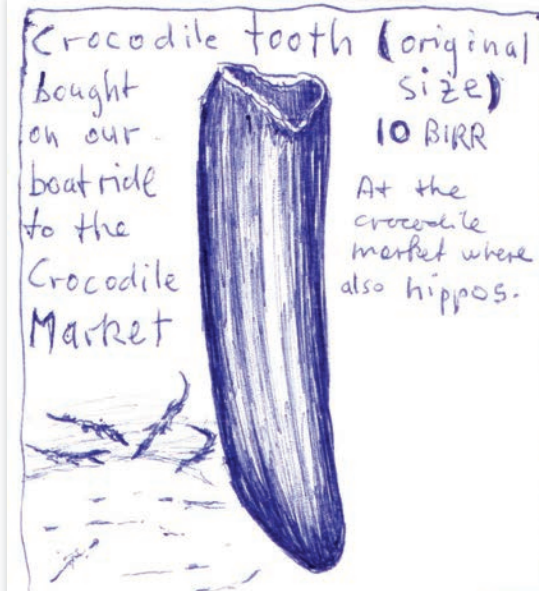 Crocodile tooth (original size)
bought
on our
boatride
to the
Crocodile
Market
10 BIRR
At the
crocodile
market where
also hippos.